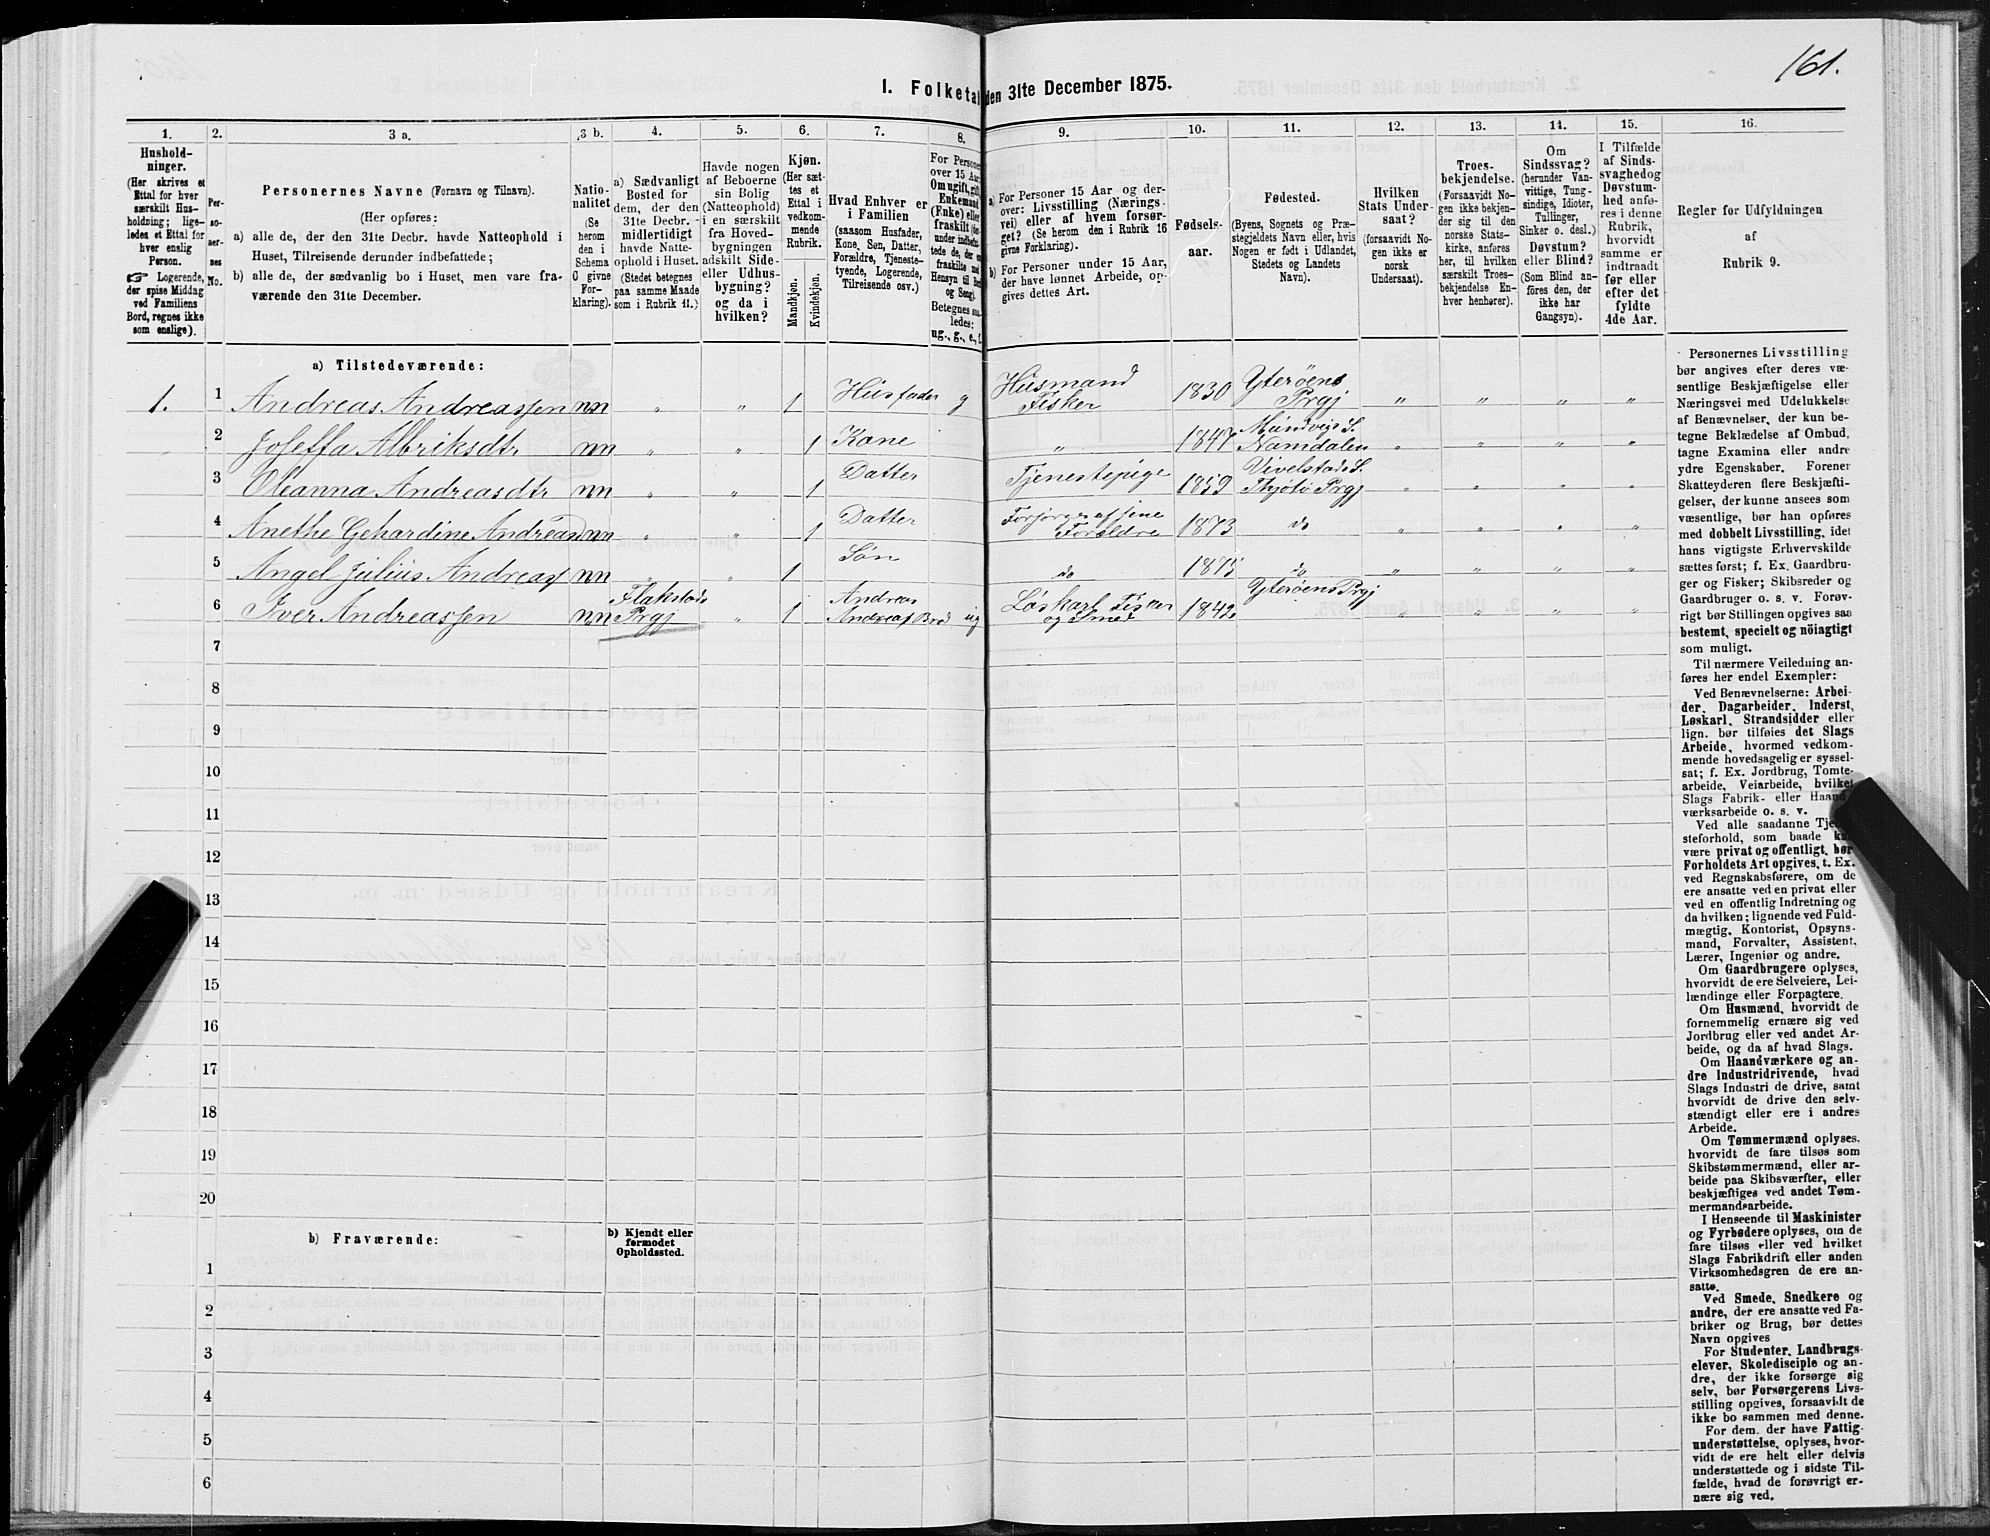 161.
1. Folketal den 31te December 1875.
1.
Hushold-
ninger.
(Her skrives et
Ettal for hver
særskilt Hus-
holdning; lige-
ledes et Ettal for
hver enslig
Person.
☞ Logerende,
der spise Middag
ved Familiens
Bord, regnes ikke
som enslige).
2.
Per-
so-
ner-
nes
No.
3 a.
Personernes Navne (Fornavn og Tilnavn).
(Her opføres:
a) alle de, der den 31te Decbr. havde Natteophold i
Huset, Tilreisende derunder indbefattede;
b) alle de, der sædvanlig bo i Huset, men vare fra-
værende den 31te December.
3 b.
Natio-
nalitet
(Se
herom
den i
Schema
C givne
For-
klaring).
4.
a) Sædvanligt
Bosted for
dem, der den
31te Decbr.
midlertidigt
havde Natte-
ophold i Huset.
(Stedet betegnes
paa samme Maade
som i Rubrik 11.)
5.
Havde nogen
af Beboerne
sin Bolig
(Natteophold)
i en særskilt
fra Hoved-
bygningen
adskilt Side-
eller Udhus-
bygning?
og da i
hvilken?
6.
Kjøn.
(Her sæt-
tes et
Ettal i
vedkom-
mende
Rubrik.
Mandkjøn.
Kvindekjøn.
7.
Hvad Enhver er
i Familien
(saasom Husfader,
Kone, Søn, Datter,
Forældre, Tjeneste-
tyende, Logerende,
Tilreisende osv.)
8.
For Personer
over 15 Aar
Om ugift, gift,
Enkemand
(Enke) eller
fraskilt
under indbefat-
tede de, der
fraskilte
Hensyn til Bord
og Seng).
Betegnes saa-
ledes:
ug., g., e., f.
9.
a) For Personer 15 Aar og der-
over: Livsstilling (Nærings-
vei) eller af hvem forsør-
get? (Se herom den i Rubrik 16
givne Forklaring).
b) For Personer under 15 Aar,
der have lønnet Arbeide, op-
gives dettes Art.
10.
Fødsels-
aar.
11.
Fødested.
(Byens, Sognets og Præ-
stegjeldets Navn eller, hvis
Nogen er født i Udlandet,
Stedets og Landets
Navn).
12.
Hvilken
Stats Under-
saat?
(forsaavidt No-
gen ikke er
norsk
Undersaat).
13.
Troes-
bekjendelse.
(Forsaavidt No-
gen ikke bekjen-
der sig til den
norske Stats-
kirke, anføres
her, til hvilken
særskilt Troes-
bekjendelse En-
hver henhører).
14.
Om
Sindssvag?
(herunder Van-
vittige, Tung-
sindige, Idioter,
Tullinger,
Sinker o. desl.)
Døvstum?
eller Blind?
(Som Blind an-
föres den, der
ikke har
Gangsyn).
15.
I Tilfælde
af Sinds-
svaghed og
Døvstum-
hed anfø-
res i denne
Rubrik,
hvorvidt
samme er
indtraadt
før eller
efter det
fyldte
4de Aar.
16.
Regler for Udfyldningen
af
Rubrik 9.
a) Tilstedeværende:
1. 1 Andreas Andreassen nn „ „ 1 Husfader g Husmand Fisker 1830 Yterøens Prgj „ „ „ „
2 Joseffa Albriksdtr nn „ „ 1 Kone „ 1847 S. Namdalen „ „ „ „
3 Oleanna Andreasdtr nn „ „ 1 Datter Tjenestepige 1859 Vivelstads S. Thjøtø Prgj „ „ „ „
4 Anethe Gehardine Andreasd nn „ „ 1 Datter Forældre 1873 do „ „ „ „
5 Angel Julius Andreas nn „ „ 1 Søn do 1875 do „ „ „ „
6 Iver Andreassen nn Flakstads Prgj „ 1 Andreas Andreas Brod ug Løskarl Fisker og Smed 1842 Yterøens Prgj „ „ „ „
7
8
9
10
11
12
13
14
15
16
17
18
19
20
b) Fraværende:
b) Kjendt eller
formodet
Opholdssted.
1
2
3
4
5
6
Personernes Livsstilling
bør angives efter deres væ-
sentlige Beskjæftigelse eller
Næringsvei med Udelukkelse
af Benævnelser, der kun be-
tegne Beklædelse af Ombud,
tagne Examina eller andre
ydre Egenskaber. Forener
Skatteyderen flere Beskjæfti-
gelser, der kunne ansees som
væsentlige, bør han opføres
med dobbelt Livsstilling, idet
hans vigtigste Erhvervskilde
sættes først; f. Ex. Gaardbru-
ger og Fisker; Skibsreder og
Gaardbruger o. s. v. Forøv-
rigt bør Stillingen opgives saa
bestemt, specielt og nöiagtigt
som muligt.
Til nærmere Veiledning an-
føres her endel Exempler:
Ved Benævnelserne: Arbei-
der, Dagarbeider, Inderst,
Løskarl, Strandsidder eller
lign. bør tilføies det Slags
Arbeide, hvormed vedkom-
mende hovedsagelig er syssel-
sat; f. Ex. Jordbrug, Tomte-
arbeide, Veiarbeide, hvilket
Slags Fabrik- eller Haand-
værksarbeide o. s. v.
Ved alle saadanne Tjene-
steforhold, som baade kan
være privat og offentligt, bør
Forholdets Art opgives, t. Ex.
ved Regnskabsførere, om de
ere ansatte ved en privat eller
ved en offentlig Indretning og
da hvilken; lignende ved Fuld-
mægtig, Kontorist, Opsyns-
mand, Forvalter, Assistent,
Lærer, Ingeniør og andre.
Om Gaardbrugere oplyses,
hvorvidt de ere Selveiere, Lei-
lændinge eller Forpagtere.
Om Husmænd, hvorvidt de
fornemmelig ernære sig ved
Jordbrug eller ved andet Ar-
beide, og da af hvad Slags.
Om Haandværkere og an-
dre Industridrivende, hvad
Slags Industri de drive, samt
hvorvidt de drive den selv-
stændigt eller ere i andres
Arbeide.
Om Tømmermænd oplyses,
hvorvidt de fare tilsøs som
Skibstømmermænd, eller ar-
beide paa Skibsværfter, eller
beskjæftiges ved andet Tøm-
mermandsarbeide.
I Henseende til Maskinister
og Fyrbødere oplyses, om de
fare tilsøs eller ved hvilket
Slags Fabrikdrift eller anden
Virksomhedsgren de ere an-
satte.
Ved Smede, Snedkere og
andre, der ere ansatte ved Fa-
briker og Brug, bør dettes
Navn opgives
For Studenter, Landbrugs-
elever, Skoledisciple og an-
dre, der ikke forsørge sig
selv, bør Forsørgerens Livs-
stilling opgives, forsaavidt de
ikke bo sammen med denne.
For dem, der have Fattig-
understøttelse, oplyses, hvor-
vidt de ere helt eller delvis
understøttede og i sidste Til-
fælde, hvad de forøvrigt er-
nære sig ved.